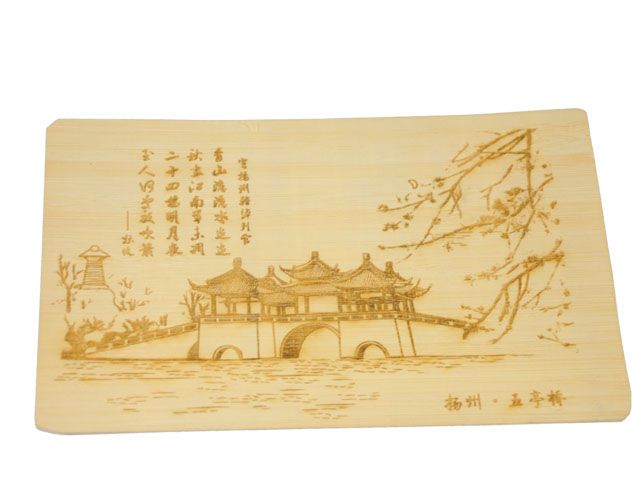 寄扬州韩绰判官
青山隐隐水迢迢
秋尽江南草未凋
二十四桥明月夜
玉人何处教吹箫
——杜牧
扬州·五亭桥